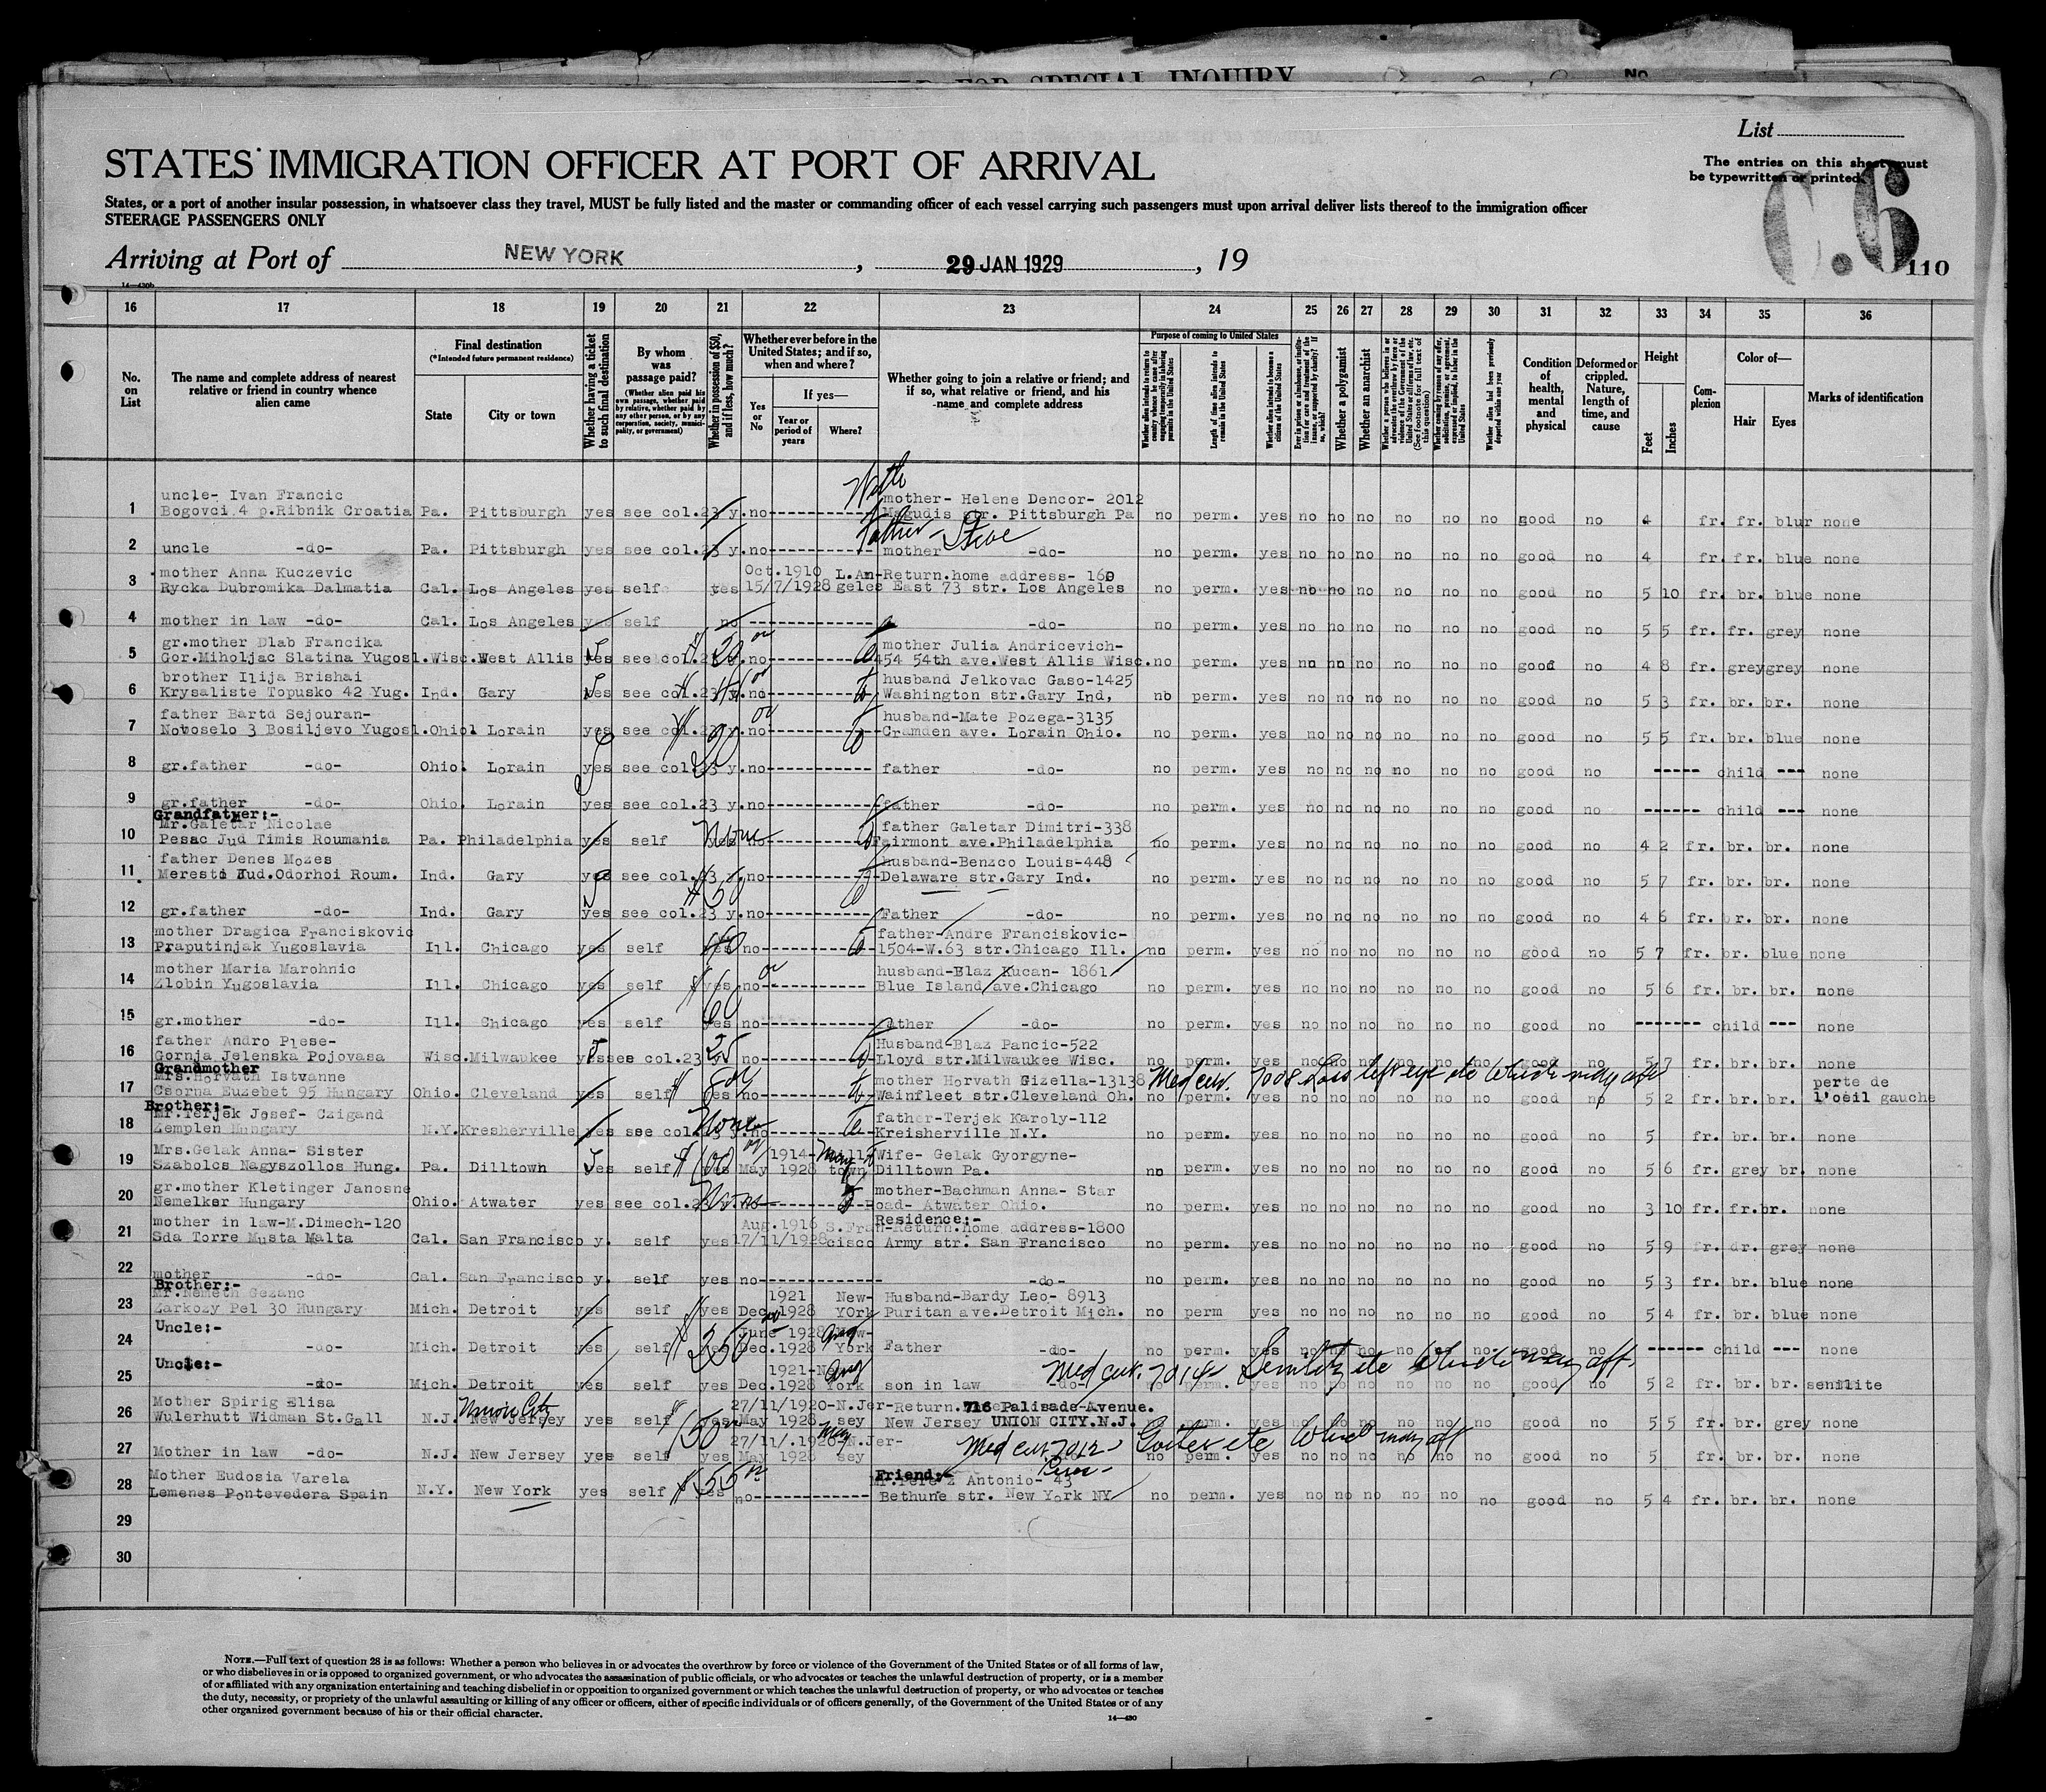 FOR SPECIAL INQUIRY
No
List
STATES IMMIGRATION OFFICER AT PORT OF ARRIVAL
The entries on this sheet must
be typewritten or printed.
C.6
States, or a port of another insular possession, in whatsoever class they travel, MUST be fully listed and the master or commanding officer of each vessel carrying such passengers must upon arrival deliver lists thereof to the immigration officer
STEERAGE PASSENGERS ONLY
Arriving at Port of NEW YORK, 29 JAN 1929, 19
110
14—430b
16 17 18 19 20 21 22 23 24 25 26 27 28 29 30 31 32 33 34 35 36
No. on List
The name and complete address of nearest relative or friend in country whence alien came
Final destination
(*Intended future permanent residence)
State
City or town
Whether having a ticket to such final destination
By whom was passage paid?
(Whether alien paid his own passage, whether paid by relative, whether paid by any other person, or by any corporation, society, municipality, or government)
Whether in possession of $50, and if less, how much?
Whether ever before in the United States; and if so, when and where?
Yes or No
If yes—
Year or period of years
Where?
Whether going to join a relative or friend; and if so, what relative or friend, and his name and complete address
Purpose of coming to United States
Length of time alien intends to remain in the United States
Whether alien intends to become a citizen of the United States
Whether a polygamist
Whether an anarchist
Condition of health, mental and physical
Deformed or crippled. Nature, length of time, and cause
Height
Feet
Inches
Complexion
Color of—
Hair
Eyes
Marks of identification
uncle- Ivan Francic mother- Helene Dencor- 2012
1 Bogovci 4 p.Ribnik Croatia Pa. Pittsburgh yes see col.23 y. no Magudis str. Pittsburgh Pa no perm. yes no no no no no no good no 4 fr. fr. blur none
Father - Steve
2 uncle -do- Pa. Pittsburgh yes see col.23 y. no mother -do- no perm. yes no no no no no no good no 4 fr. fr. blue none
mother Anna Kuczevic Oct.1910 L.An-Return.home address- 160
3 Rycka Dubromika Dalmatia Cal. Los Angeles yes self yes 15/7/1928 geles East 73 str. Los Angeles no perm. yes no no no no no no good no 5 10 fr. br. blue none
4 mother in law -do- Cal. Los Angeles yes self no -do- no perm. yes no no no no no no good no 5 5 fr. fr. grey none
gr.mother Dlab Francika mother Julia Andricevich-
5 Gor.Miholjac Slatina Yugosl. Wisc. West Allis yes see col.23 20 no 454 54th ave.West Allis Wisc. no perm. yes no no no no no no good no 4 8 fr. grey grey none
brother Ilija Brishai husband Jelkovac Gaso-1425
6 Krysaliste Topusko 42 Yug. Ind. Gary yes see col.23 y. no Washington str.Gary Ind, no perm. yes no no no no no no good no 5 3 fr. br. br. none
father Bartd Sejouran- husband-Mate Pozega-3135
7 Novoselo 3 Bosiljevo Yugosl. Ohio. Lorain yes see col.23 y. no Cramden ave. Lorain Ohio. no perm. yes no no no no no no good no 5 5 fr. br. blue none
8 gr.father -do- Ohio. Lorain yes see col.23 y. no father -do- no perm. yes no no no no no no good no ----- child --- none
9 gr.father -do- Ohio. Lorain yes see col.23 y. no father -do- no perm. yes no no no no no no good no ------ child --- none
Grandfather:-
Mr.Galetar Nicolae father Galetar Dimitri-338
10 Pesac Jud Timis Roumania Pa. Philadelphia yes self None no Fairmont ave.Philadelphia no perm. yes no no no no no no good no 4 2 fr. br. br. none
father Denes Mozes husband-Benzco Louis-448
11 Meresti Jud.Odorhoi Roum. Ind. Gary yes see col.23 y. no Delaware str.Gary Ind. no perm. yes no no no no no no good no 5 7 fr. br. br. none
$50
12 gr.father -do- Ind. Gary yes see col.23 y. no Father -do- no perm. yes no no no no no no good no 4 6 fr. br. br. none
mother Dragica Franciskovic father-Andre Franciskovic-
13 Praputinjak Yugoslavia Ill. Chicago yes self no 1504-W.63 str.Chicago Ill. no perm. yes no no no no no no good no 5 7 fr. br. blue none
mother Maria Marohnic husband-Blaz Kucan- 1861
14 Zlobin Yugoslavia Ill. Chicago yes self yes no Blue Island ave.Chicago no perm. yes no no no no no no good no 5 6 fr. br. br. none
60
15 gr.mother -do- Ill. Chicago yes self yes no father -do- no perm. yes no no no no no no good no ------ child --- none
father Andro Plese- Husband-Blaz Pancic-522
16 Gornja Jelenska Pojovasa Wisc. Milwaukee yes see col.23 25 no Lloyd str.Milwaukee Wisc. no perm. yes no no no no no no good no 5 7 fr. br. br. none
Grandmother
Mrs.Horvath Istvanne mother Horvath Gizella-13138 Med cer. 7008 Loss left eye etc which may aff perte de
17 Csorna Euzebet 95 Hungary Ohio. Cleveland yes self yes no Wainfleet str.Cleveland Oh. no perm. yes no no no no no no good no 5 2 fr. br. br. l'oeil gauche
Brother:-
Mr.Terjek Josef- Czigand father-Terjek Karoly-112
18 Zemplen Hungary N.Y. Kresherville yes see col. None y. no Kreisherville N.Y. no perm. yes no no no no no no good no 5 fr. br. br. none
Mrs.Gelak Anna- Sister 1914- Wife- Gelak Gyorgyne-
19 Szabolcs Nagyszollos Hung. Pa. Dilltown yes self $100 yes May 1928 town Dilltown Pa. no perm. yes no no no no no no good no 5 6 fr. grey br. none
gr.mother Kletinger Janosne mother-Bachman Anna- Star
20 Nemelker Hungary Ohio. Atwater yes see col.23 no Road- Atwater Ohio. no perm. yes no no no no no no good no 3 10 fr. fr. br. none
Residence:-
mother in law-M.Dimech-120 Aug.1916 S.Fran-Return.home address-1800
21 Sda Torre Musta Malta Cal. San Francisco y. self yes 17/11/1928 cisco Army str. San Francisco no perm. yes no no no no no no good no 5 9 fr. dr. grey none
22 mother -do- Cal. San Francisco y. self yes no -do- no perm. yes no no no no no no good no 5 3 fr. br. blue none
Brother:-
Mr.Nemeth Gezanc 1921 New- Husband-Bardy Leo- 8913
23 Zarkozy Pel 30 Hungary Mich. Detroit yes self yes Dec. 1928 York Puritan ave.Detroit Mich. no perm yes no no no no no no good no 5 4 fr. br. blue none
Uncle:- June 1928 New-
24 -do- Mich. Detroit yes self $250 Dec.1928 York Father -do- no perm. yes no no no no no no good no ------ child --- none
Uncle:- 1921-N Med cer. 7014 Senility etc which may aff.
25 -do- Mich. Detroit yes self yes Dec.1928 York son in law -do- no perm. yes no no no no no no good no 5 2 fr. br. br. senilite
Mother Spirig Elisa Union City 27/11/1920-N.Jer-Return. 716 Palisade Avenue.
26 Wulerhutt Widman St.Gall N.J. New Jersey yes self yes May 1928 sey New Jersey UNION CITY.N.J. perm. yes no no no no no no good no 5 5 fr. br. grey none
$150 27/11/.1920-N.Jer- Med cer. 7012 Goiter etc which may aff
27 Mother in law -do- N.J. New Jersey yes self yes May 1928 sey no perm. yes no no no no no no good no 5 fr. br. br. none
Friend:-
Mother Eudosia Varela $55 Mr.Perez Antonio- 43
28 Lemenes Pontevedera Spain N.Y. New York yes self yes no Bethune str. New York NY no perm. yes no no no no no no good no 5 4 fr. br. br. none
29
30
NOTE.—Full text of question 28 is as follows: Whether a person who believes in or advocates the overthrow by force or violence of the Government of the United States or of all forms of law,
or who disbelieves in or is opposed to organized government, or who advocates the assassination of public officials, or who advocates or teaches the unlawful destruction of property, or is a member
of or affiliated with any organization entertaining and teaching disbelief in or opposition to organized government or which teaches the unlawful destruction of property, or who advocates or teaches
the duty, necessity, or propriety of the unlawful assaulting or killing of any officer or officers, either of specific individuals or of officers generally, of the Government of the United States or of any
other organized government because of his or their official character.
14—430